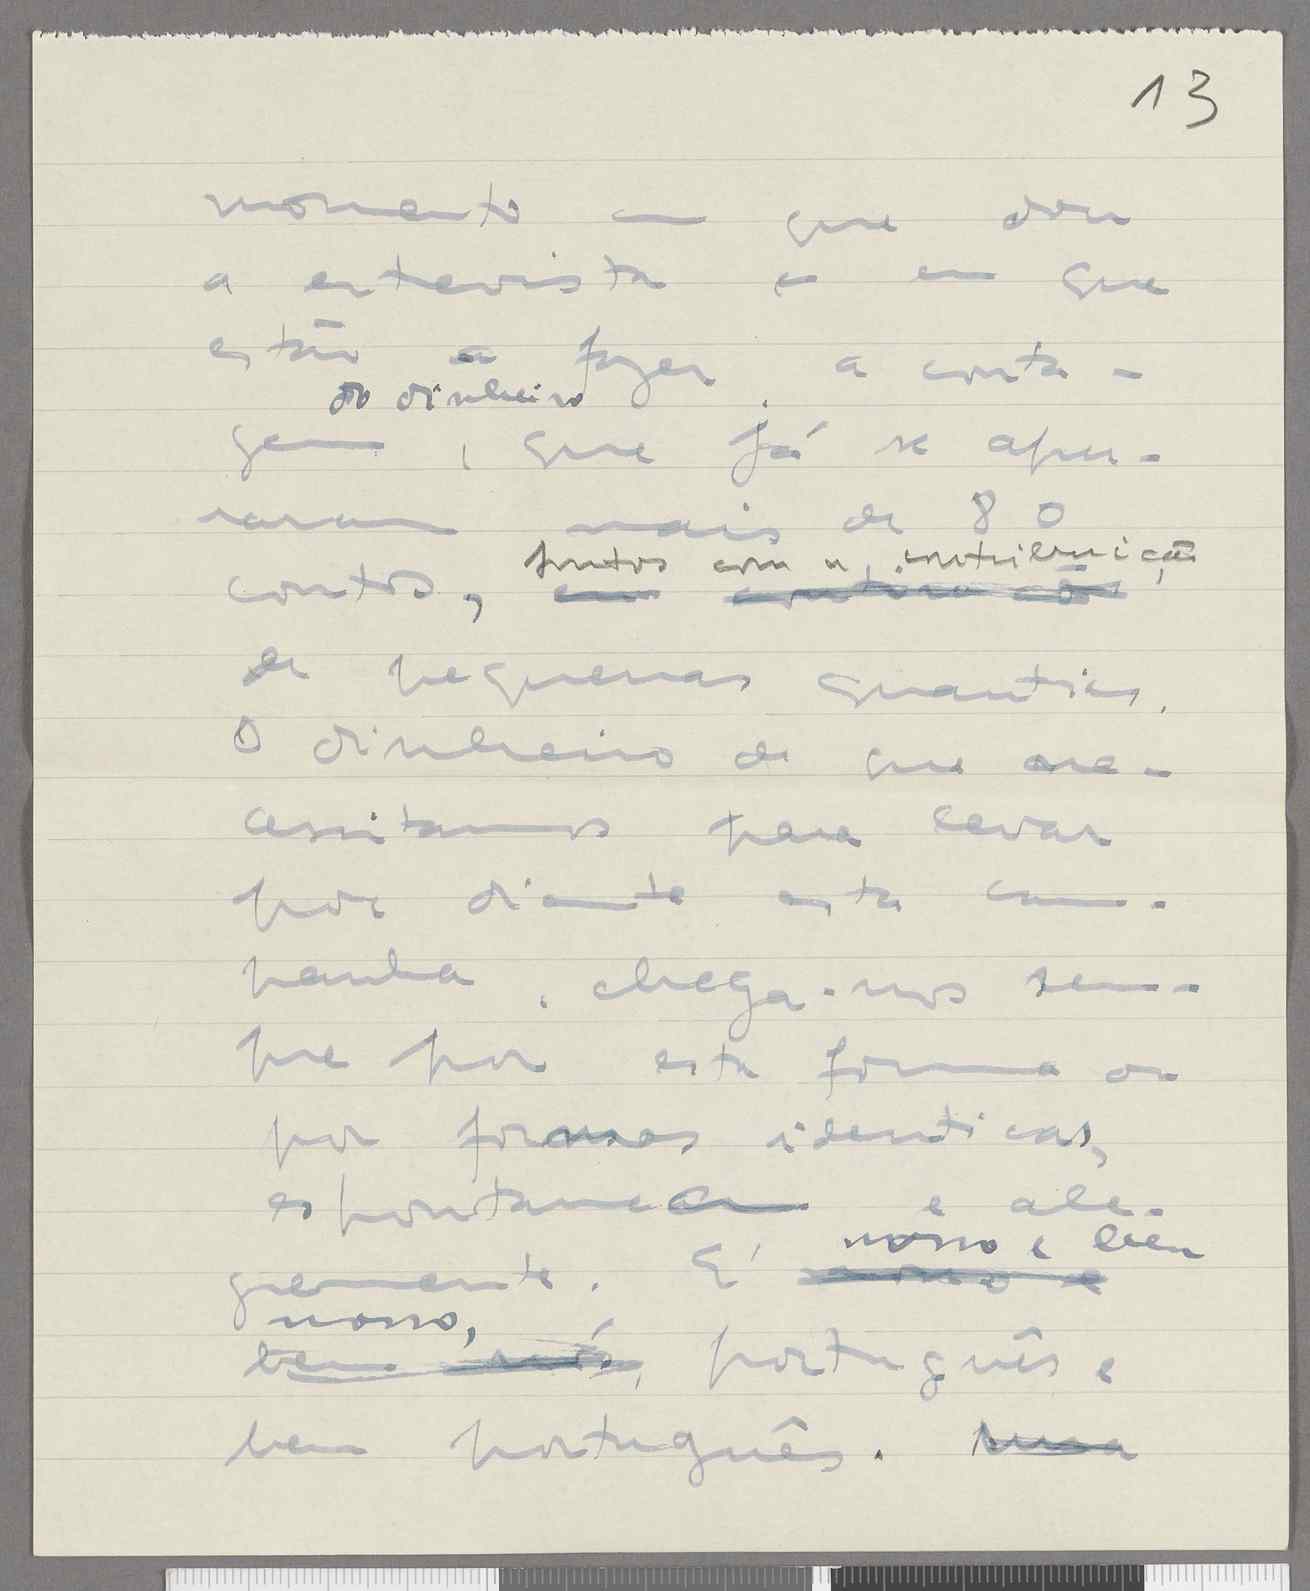 13
momento em que dou
a entrevista e em que
estão a fazer a conta-
do dinheiro
gem, que já se apu-
raram mais de 80
juntos com a contribuição
contos, em
de pequenas quantias.
O dinheiro de que ne-
cessitamos para levar
por diante esta cam-
panha, chega-nos sem-
pre por esta forma ou
por formas identicas,
espontanea e ale-
nosso e bem
gremente. E' nosso e
nosso,
bem nós, português e
bem português.